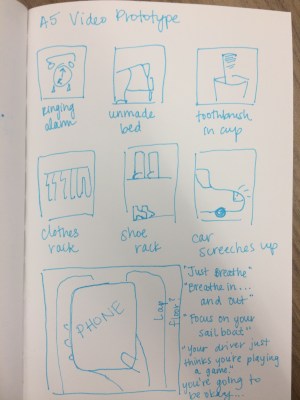 A5 Video Prototype
Ringing
alarm
unmade
bed
toothbrush
in cup
clothes
rack
shoe
rack
car
screeches up
PHONE
Lap
floor?
"Just Breathe"
"Breathe in...
and out"
"Focus on your
sailboat"
"your driver just
thinks you're playing
a game."
you're going to
be okay....